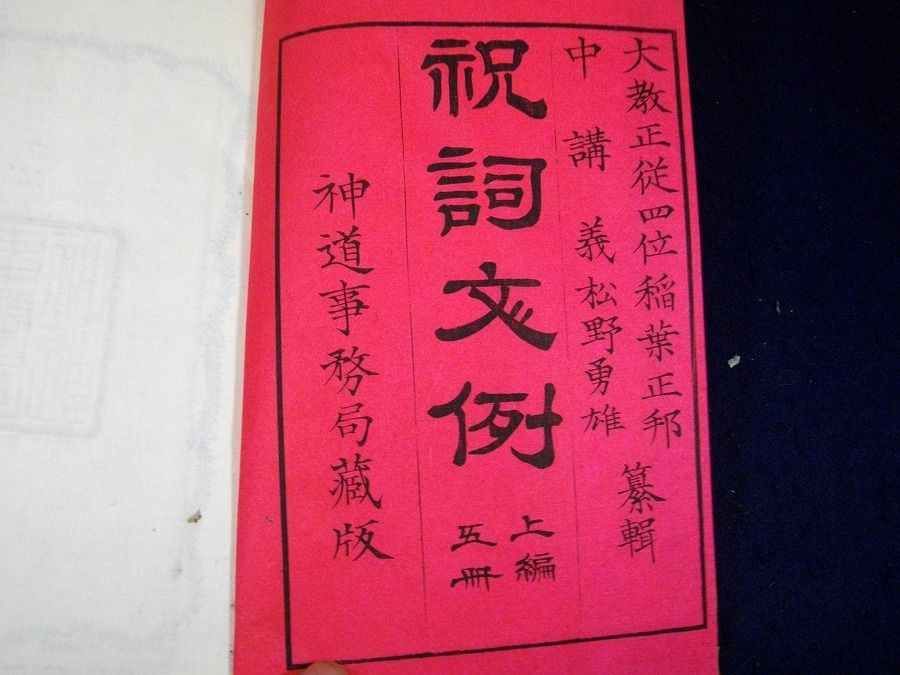 大教正従四位稲葉正邦
中講義松野勇雄
纂輯
祝詞文例
上編
五冊
神道事務局蔵版